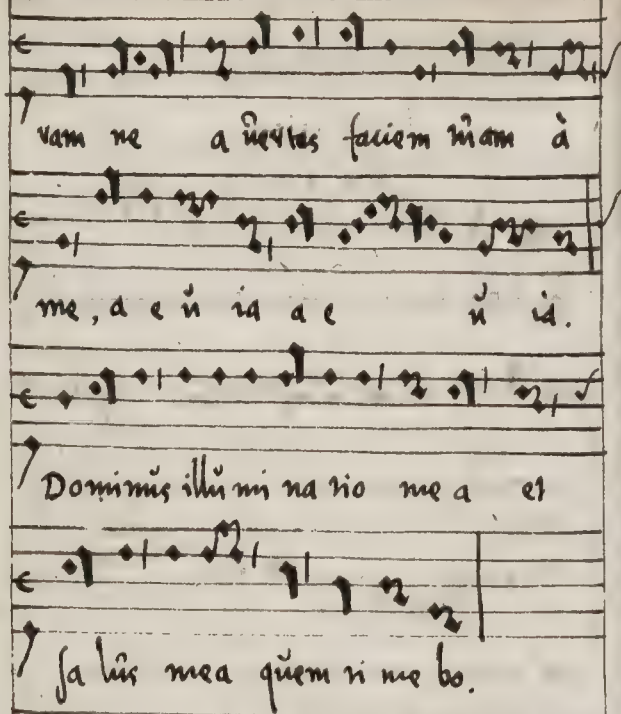 vam ne a ũertas faciem tũam à
me, a e ũ ia a e ũ ia.
Dominũs illũ mi na tio me a et
sa lũs mea qũem ti me bo.